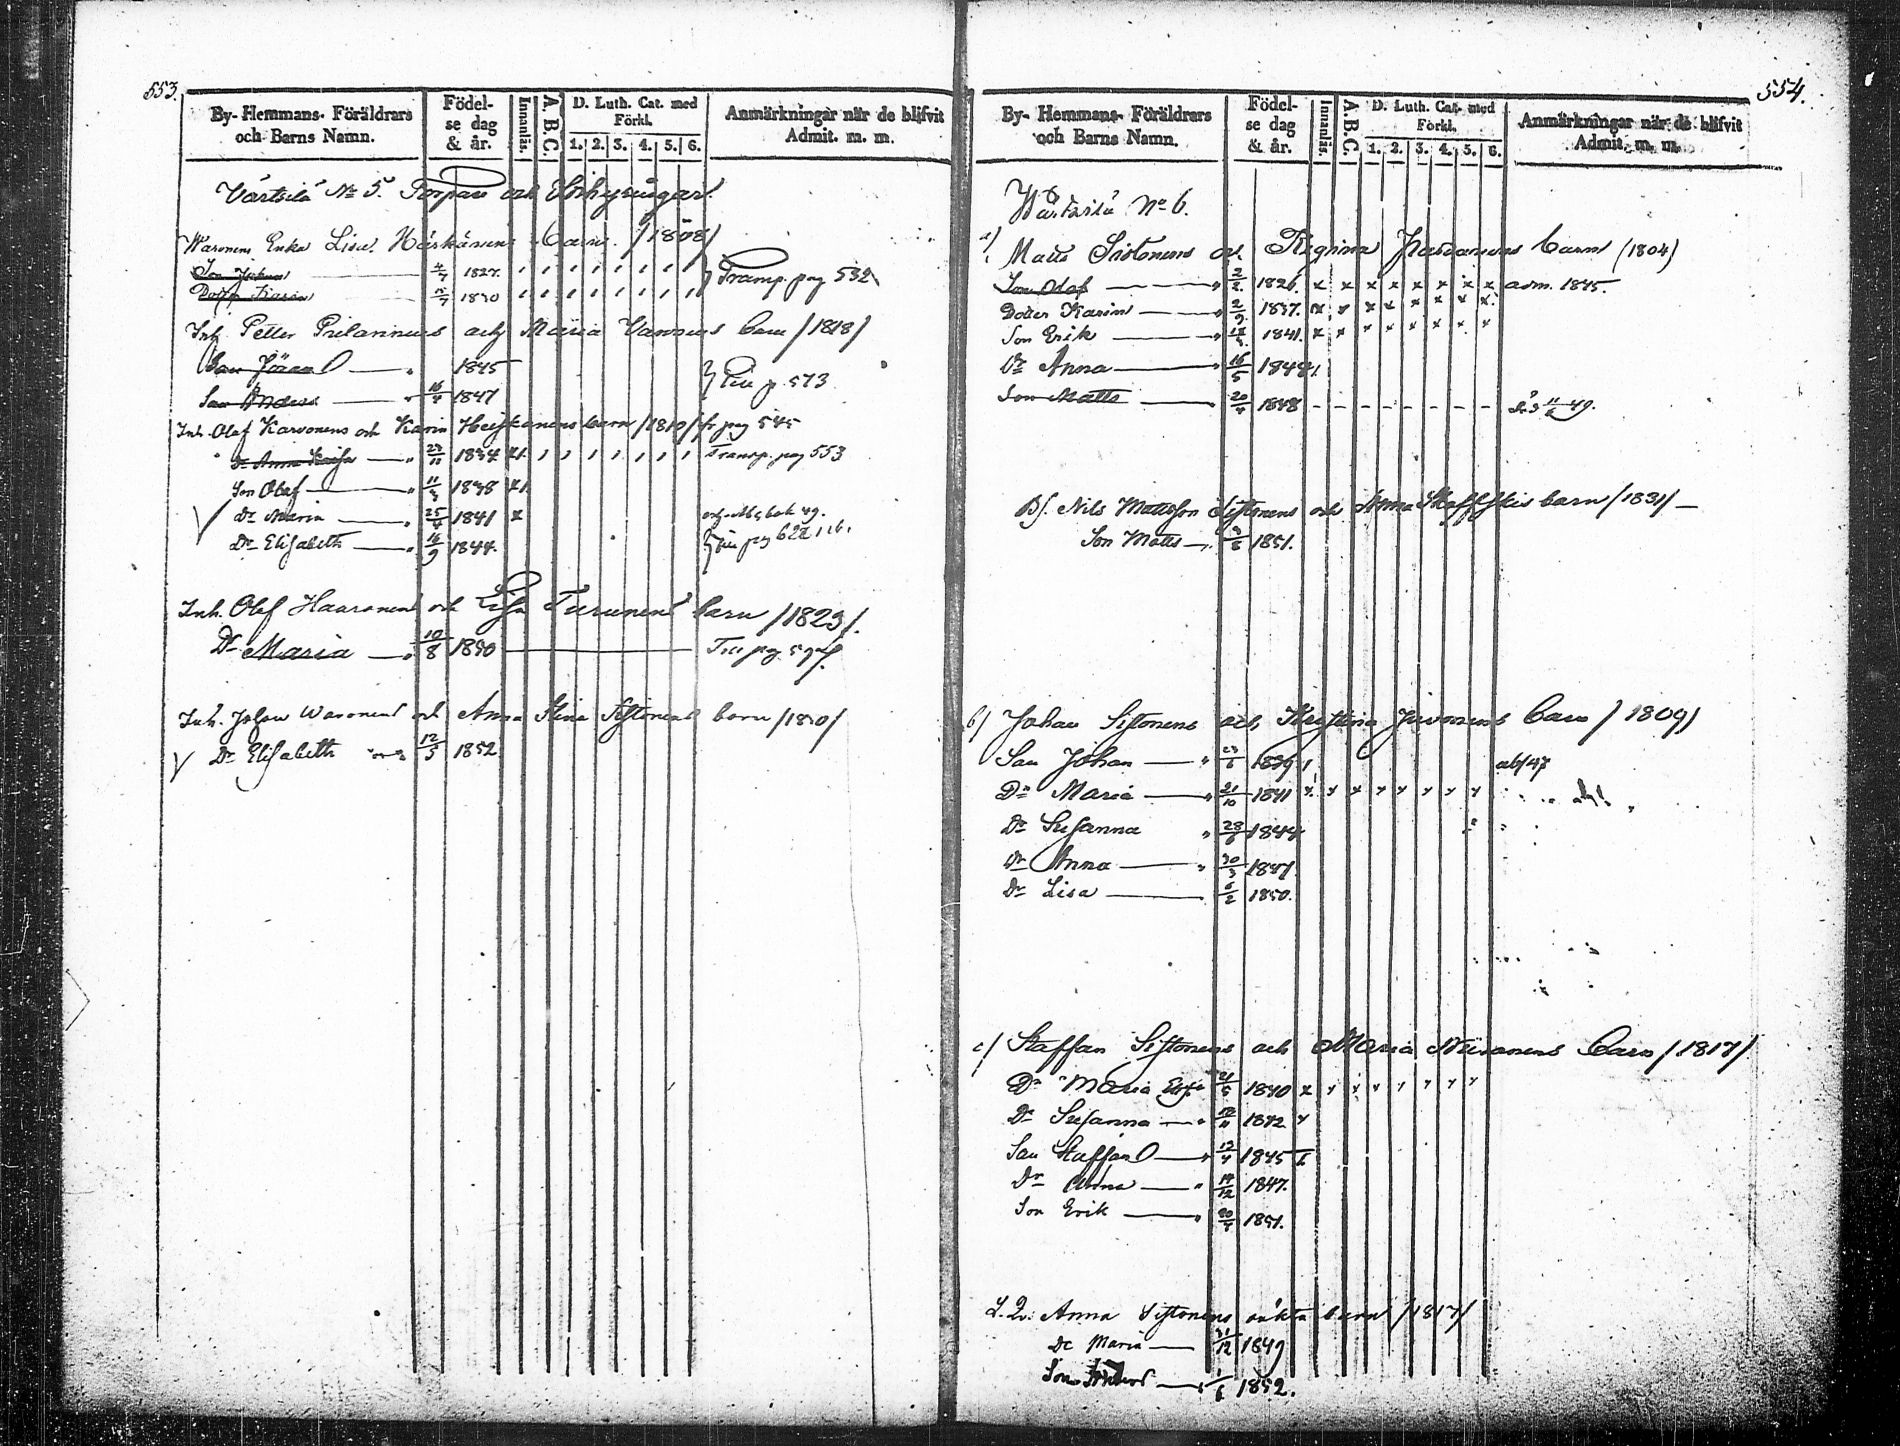 553.
By- Hemmans- Föräldrars och Barns Namn.
Födel-se dag & år.
Innanläs.
A.B.C.
D. Luth. Cat. med Förkl.
1. 2. 3. 4. 5. 6.
Anmärkningar när de blifvit Admit. m. m.
Värtsilä No 5. Torpare och Inhysingar.
Waronens Enka Lisa Härkänens Barn /1808/
Son Johan 4/7 1827. Transp. pag 532
Dotter Karin 1830
Inh Petter Pielannens och Maria Varonens barn /1818/
Son Jöran 1845 Till p. 573
Son Anders 16/4 1847
Inh. Olof Karvonens och Karin Heiskanens barn /1810/ fr pag 545
Dr Anna Kaisa 23/11 1834 Transp. pag 553
Son Olof 11/3 1838
Dr Maria 25/4 1841
Dr Elisabeth 16/9 1844. Till pag 622
Inh. Olof Haaronens och Lisa Turunens barn /1823/.
Dr Maria 10/8 1850 Till pag
Inh. Johan Waronens och Anna Stina Sistonens barn /1830/
Dr Elisabeth 12/5 1852
554.
By- Hemmans- Föräldrars och Barns Namn.
Födel-se dag & år.
Innanläs.
A.B.C.
D. Luth. Cat. med Förkl.
1. 2. 3. 4. 5. 6.
Anmärkningar när de blifvit Admit. m. m.
Värtsilä No 6.
a/ Matts Sistonens och Regina barn (1804)
Son Olof 2/2 1826 x x x x x x x x adm. 1845.
Dotter Karin 2/9 1837. x x x x x x x x
Son Erik 1841. x x x x x x x x
Dr Anna 16/5 1844
Son Matts 20/4 1848 11/6 49.
Nils Mattsson Sistonens och Anna barn /1831/
Son Matts 1851.
b/ Johan Sistonens och Kristina Juvonens barn /1809/
Son Johan 23/6 1839
Dr Maria 21/10 1841
Dr Susanna 28/6 1844
Dr Anna 30/3 1847
Dr Lisa 6/2 1850.
c/ Staffan Sistonens och Maria Niiranens barn /1817/
Dr Maria 21/5 1840
Dr Susanna 1842
Son Staffan 13/4 1845
Dr Anna 14/12 1847.
Son Erik 1851.
L. Q. Anna Sistonens oäkta barn /1817/
Dr Maria 31/12 1849
Son 1852.